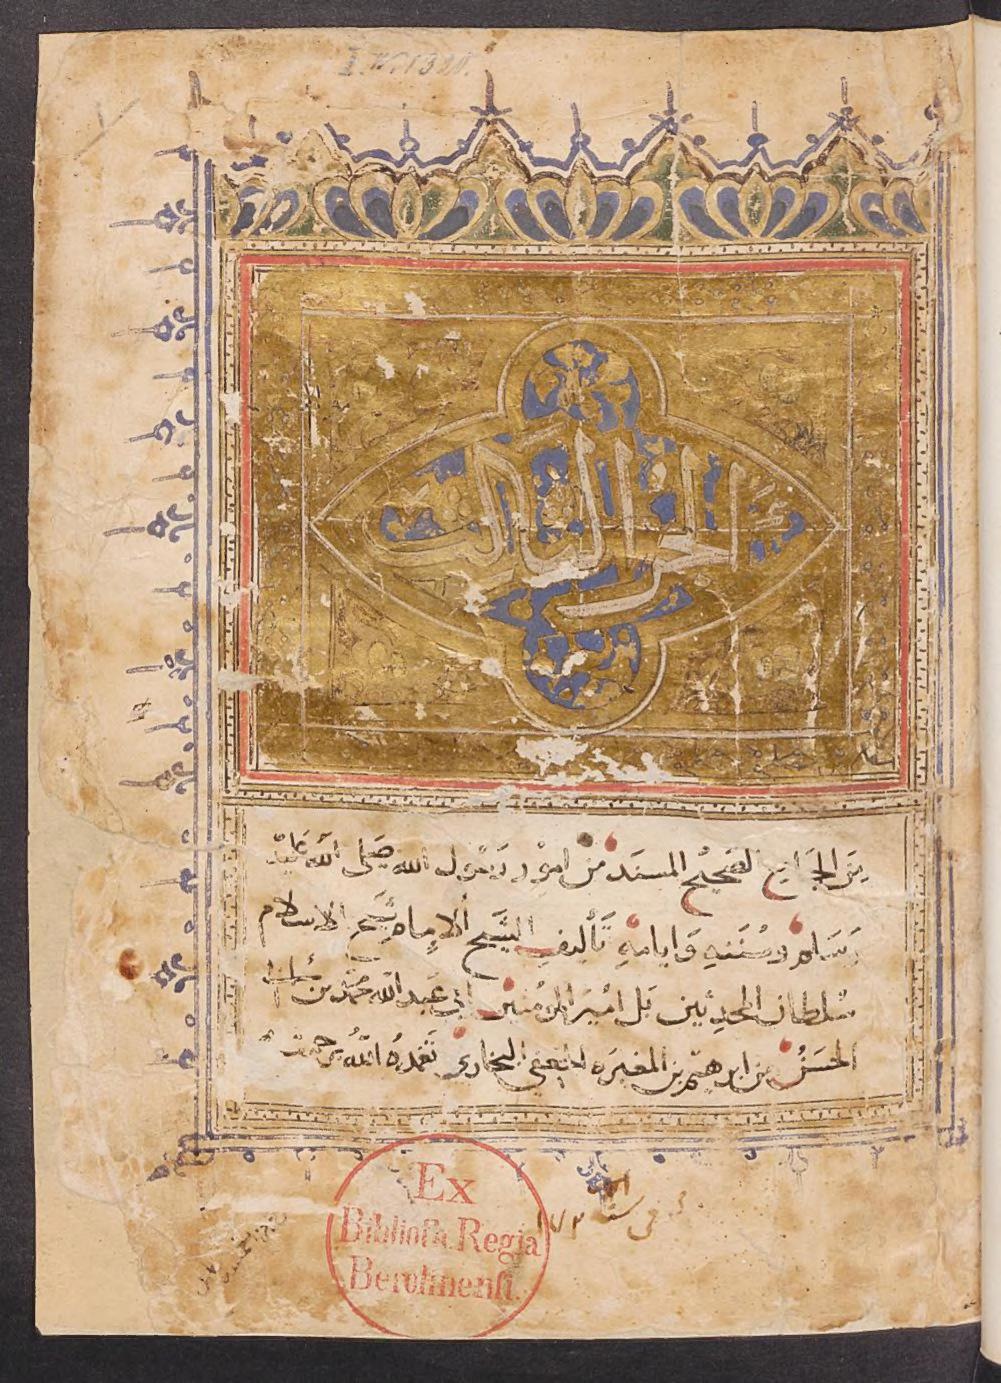 الجزء الثالث
من الجامع الصحيح المسند من امور رسول الله صلى الله عليه
وسلم وسننه وايامه تأليف الشيخ الامام شيخ الاسلام
سلطان المحدثين بل امير المؤمنين ابي عبد الله محمد بن
الحسن بن ابرهيم بن المغيره الجعفي البخاري تغمده الله برحمته
في سنة
Ex
Biblioth. Regia
Berolinensi.